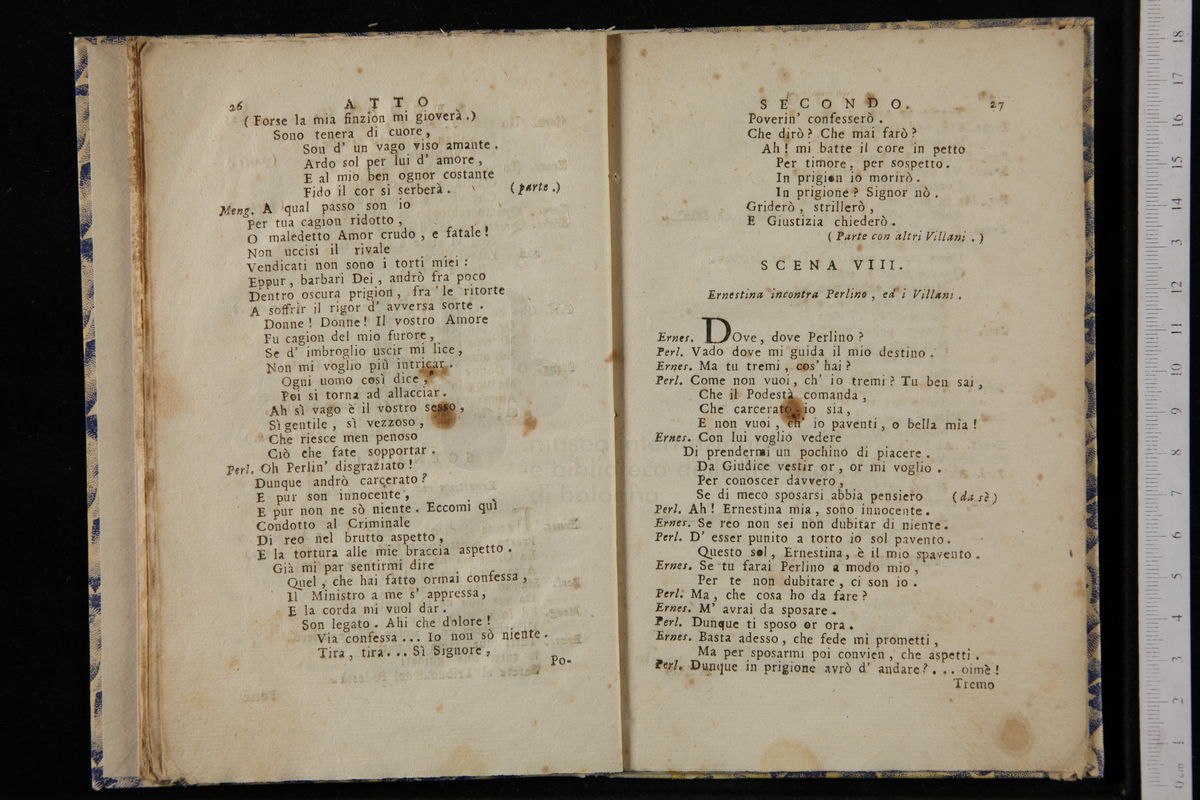 26 ATTO
( Forse la mia finzion mi gioverà .)
Sono tenera di cuore,
Son d' un vago viso amante .
Ardo sol per lui d' amore ,
E al mio ben ognor costante
Fido il cor si serberà . ( parte .)
Meng. A qual passo son io
Per tua cagion ridotto ,
O maledetto Amor crudo , e fatale !
Non uccisi il rivale
Vendicati non sono i torti miei :
Eppur , barbari Dei , andrò fra poco
Dentro oscura prigion , fra le ritorte
A soffrir il rigor d' avversa sorte .
Donne ! Donne ! Il vostro Amore
Fu cagion del mio furore ,
Se d' imbroglio uscir mi lice ,
Non mi voglio più intricar .
Ogni uomo così dice ,
Poi si torna ad allacciar .
Ah sì vago è il vostro sesso ,
Sì gentile , sì vezzoso ,
Che riesce men penoso
Ciò che fate sopportar .
Perl. Oh Perlin' disgraziato !
Dunque andrò carcerato ?
E pur son innocente ,
E pur non ne sò niente . Eccomi quì
Condotto al Criminale
Di reo nel brutto aspetto ,
E la tortura alle mie braccia aspetto .
Già mi par sentirmi dire
Quel , che hai fatto ormai confessa ,
Il Ministro a me s' appressa ,
E la corda mi vuol dar .
Son legato . Ahi che dolore !
Via confessa ... Io non sò niente .
Tira , tira ... Sì Signore ,
Po-
SECONDO. 27
Poverin' confesserò .
Che dirò ? Che mai farò ?
Ah ! mi batte il core in petto
Per timore , per sospetto .
In prigion io morirò .
In prigione ? Signor nò .
Griderò , strillerò ,
E Giustizia chiederò .
( Parte con altri Villani . )
SCENA VIII.
Ernestina incontra Perlino , ed i Villani .
Ernes. DOve, dove Perlino ?
Perl. Vado dove mi guida il mio destino .
Ernes. Ma tu tremi , cos' hai ?
Perl. Come non vuoi , ch' io tremi ? Tu ben sai ,
Che il Podestà comanda ,
Che carcerato io sia ,
E non vuoi , ch' io paventi , o bella mia !
Ernes. Con lui voglio vedere
Di prendermi un pochino di piacere .
Da Giudice vestir or , or mi voglio .
Per conoscer davvero ,
Se di meco sposarsi abbia pensiero ( da sè )
Perl. Ah ! Ernestina mia , sono innocente .
Ernes. Se reo non sei non dubitar di niente .
Perl. D' esser punito a torto io sol pavento .
Questo sol , Ernestina , è il mio spavento .
Ernes. Se tu farai Perlino a modo mio ,
Per te non dubitare , ci son io .
Perl. Ma , che cosa ho da fare ?
Ernes. M' avrai da sposare .
Perl. Dunque ti sposo or ora .
Ernes. Basta adesso , che fede mi prometti ,
Ma per sposarmi poi convien , che aspetti .
Perl. Dunque in prigione avrò d' andare ? ... oimè !
Tremo